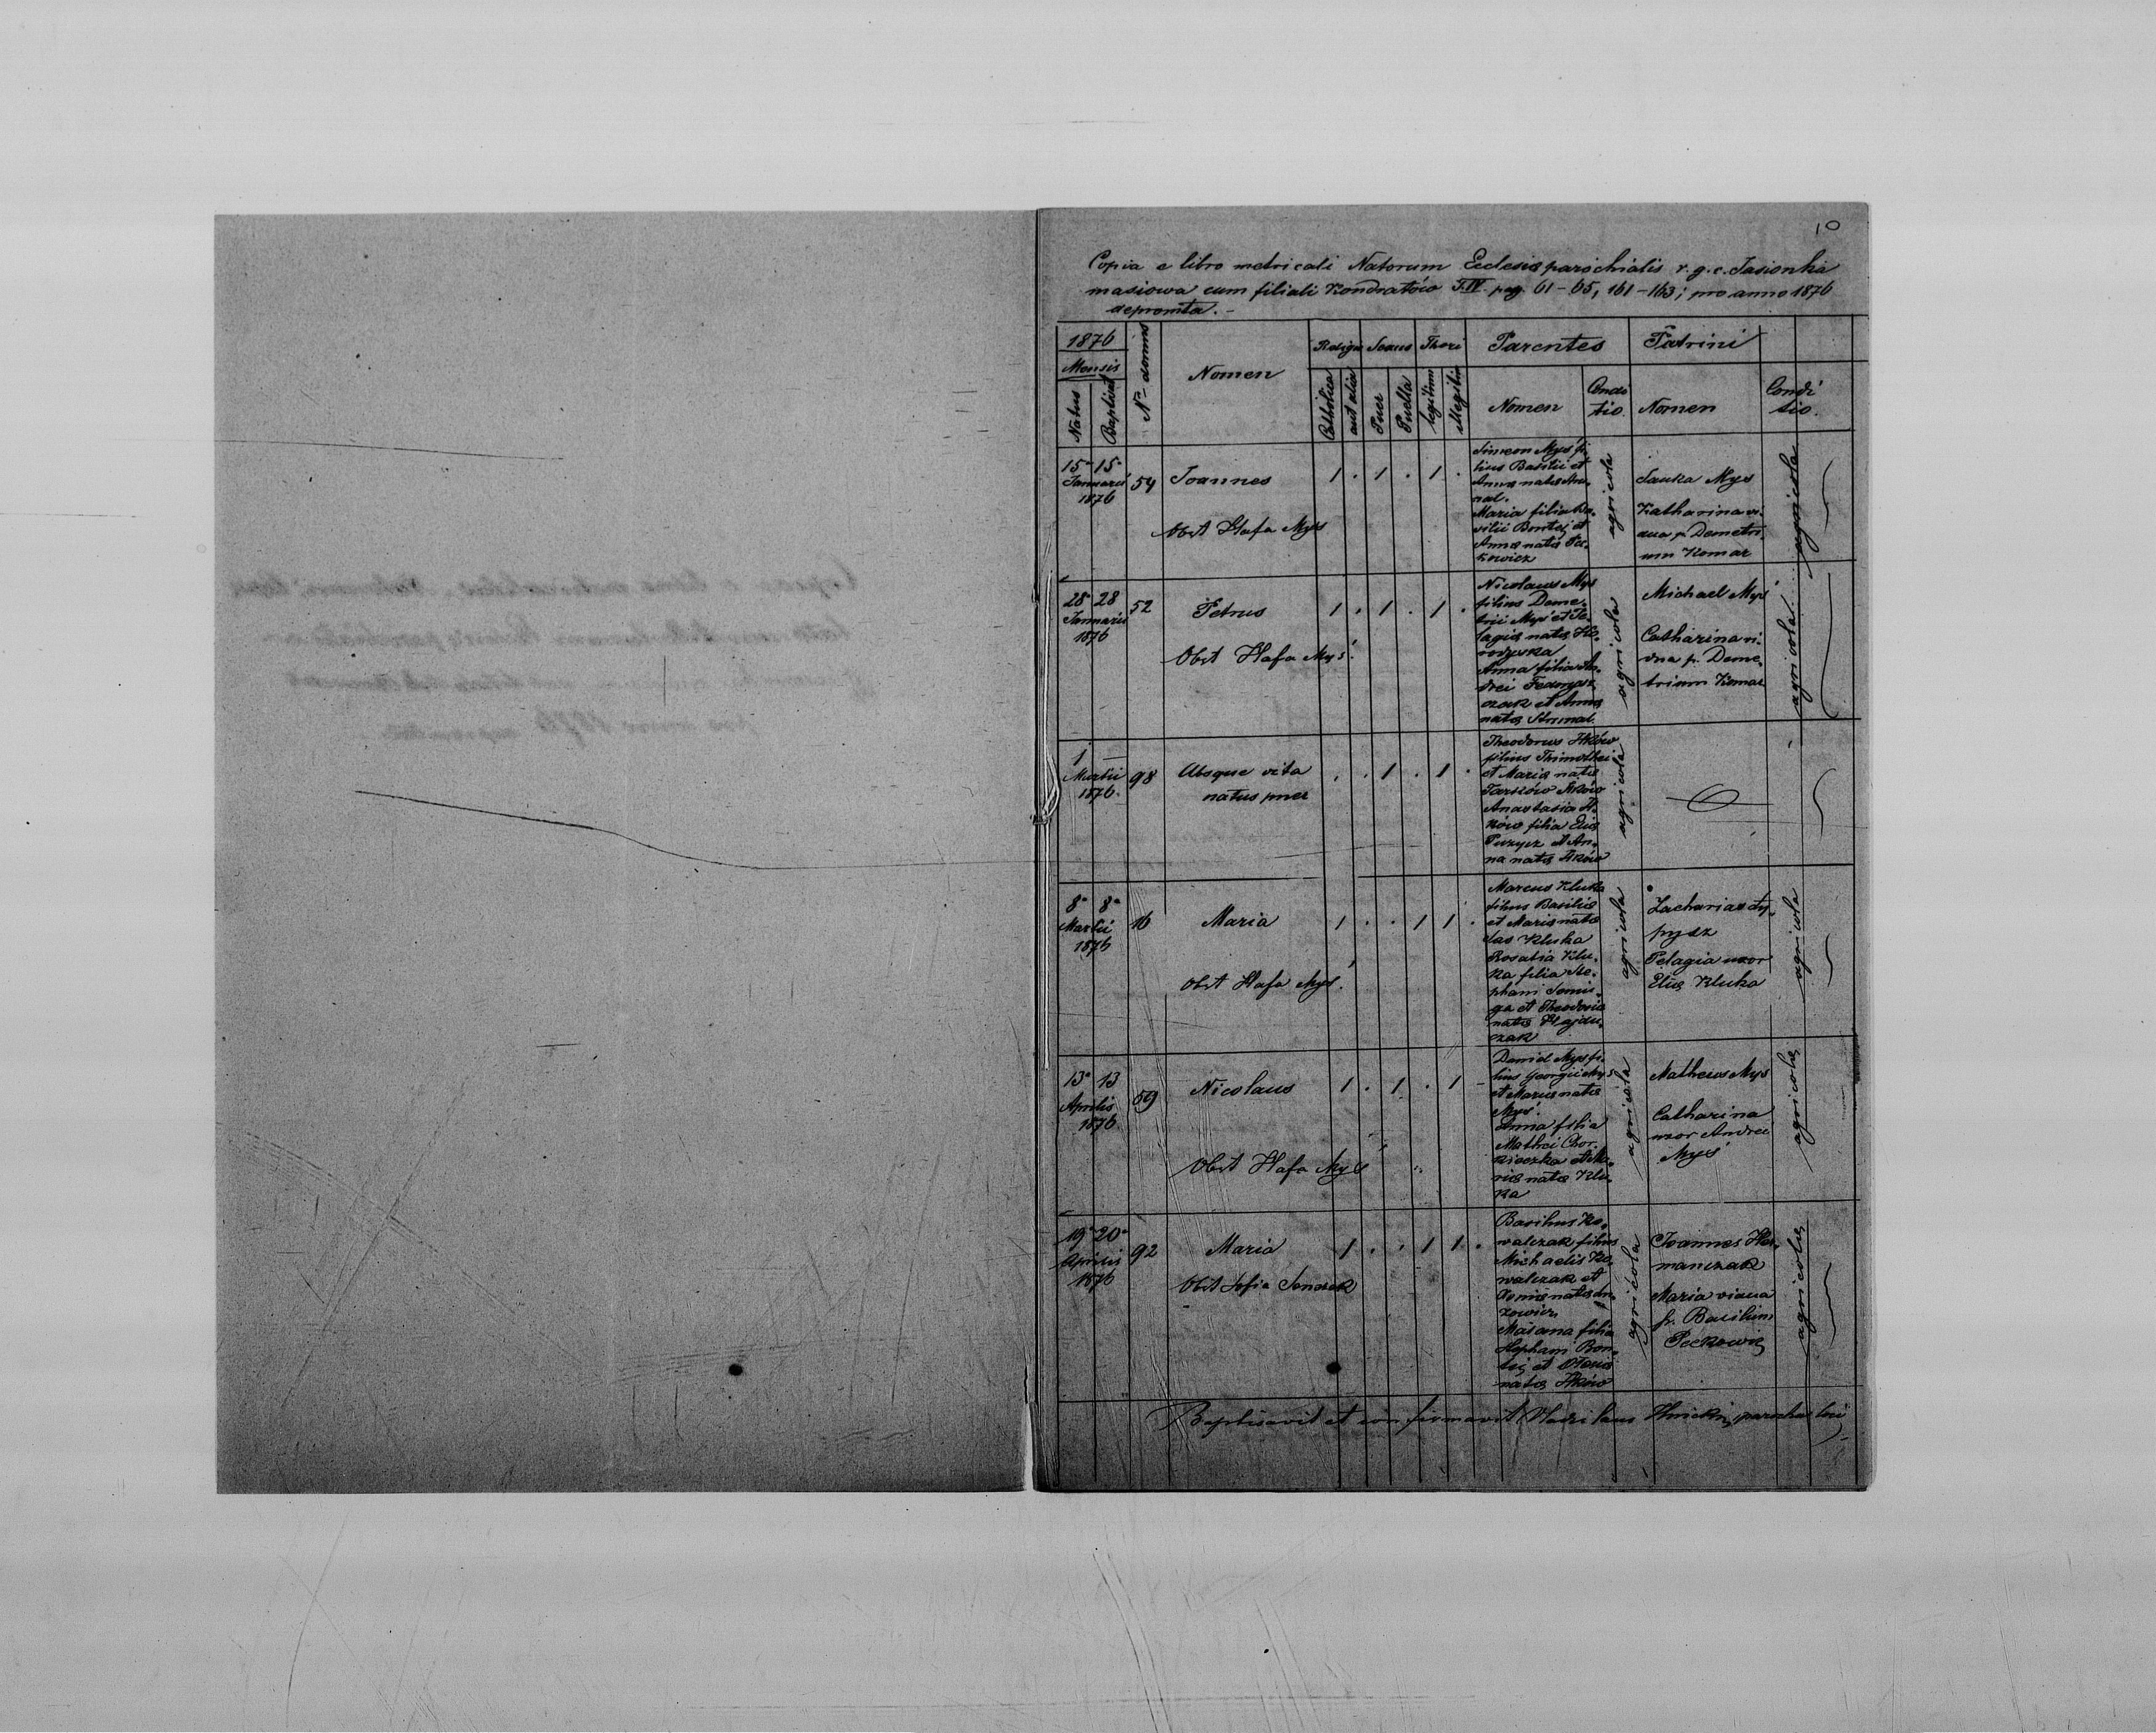 10
Copia e libro metricali Natorum Ecclesiæ parochialis r. g. c. Jasionka
masiowa cum filiali Kondratów T. IV. pag. 61-65, 161-163; pro anno 1876
depromta.-
1876
Mensis
Natus
Baptisat
Nr domus
Nomen
Religio
Catholica
aut alia
Sexus
Puer
Puella
Thori
legitimi
illegitimi
Parentes
Nomen
Condi
tio
Patrini
Nomen
Condi
tio.
15 15
Januarii
1876
54
Joannes
1 . 1 . 1 .
Obst Hafa Myś
Simeon Myś fi-
lius Basilii et
Annæ natæ
Maria filia Ba-
silii Bontej et
Annæ natæ
agricola
Sauka Myś
Katharina vi-
dua p. Demetri-
um Komar
agricola
28 28
Januarii
1876
52
Petrus
1 . 1 . 1 .
Obst Hafa Myś.
Nicolaus Myś
filius Deme-
trii Myś et Pe-
lagiæ natæ
Anna filia An-
drei
czak et Annæ
natæ
agricola
Michael Myś
Catharina vi-
dua p. Deme-
trium Komar
agricola
1 —
Martii
1876.
98
Absque vita
natus puer
. . 1 . 1 .
Theodorus Ilków
filius Thimothei
et Mariæ natæ
Ilków
Anastasia Il-
ków filia Eliæ
et An-
na natæ Ilków
agricola
8 8
Martii
1876
16
Maria
1 . . 1 1 .
Obst Hafa Myś.
Marcus Kluka
filius Basilii
et Mariæ natæ
Kluka
Rosalia Klu-
ka filia Ste-
phani
et Theodoriæ
natæ Hajdu-
czak
agricola
Zacharias
Pelagia uxor
Eliæ Kluka
agricola
13 13
Aprilis
1876
59
Nicolaus
1 . 1 . 1 -
Obst Hafa Myś
Daniel Myś fi-
lius Georgii Myś
et Mariæ natæ
Myś.
Anna filia
Mathei
et Ma-
riæ natæ Klu-
ka
agricola
Matheus Myś
Catharina
uxor Andrei
Myś
agricolæ
19 20
Aprilis
1876
92
Maria
1 . . 1 1 .
Obst Sofia
Basilius Ko-
walczak filius
Michaelis Ko-
walczak et
natæ
filia
Stephani Bon-
tej et
natæ Ilków
agricola
Joannes
manczak
Maria vidua
p. Basilium
agricolæ
Baptisavit et confirmavit Vladislaus parochus loci